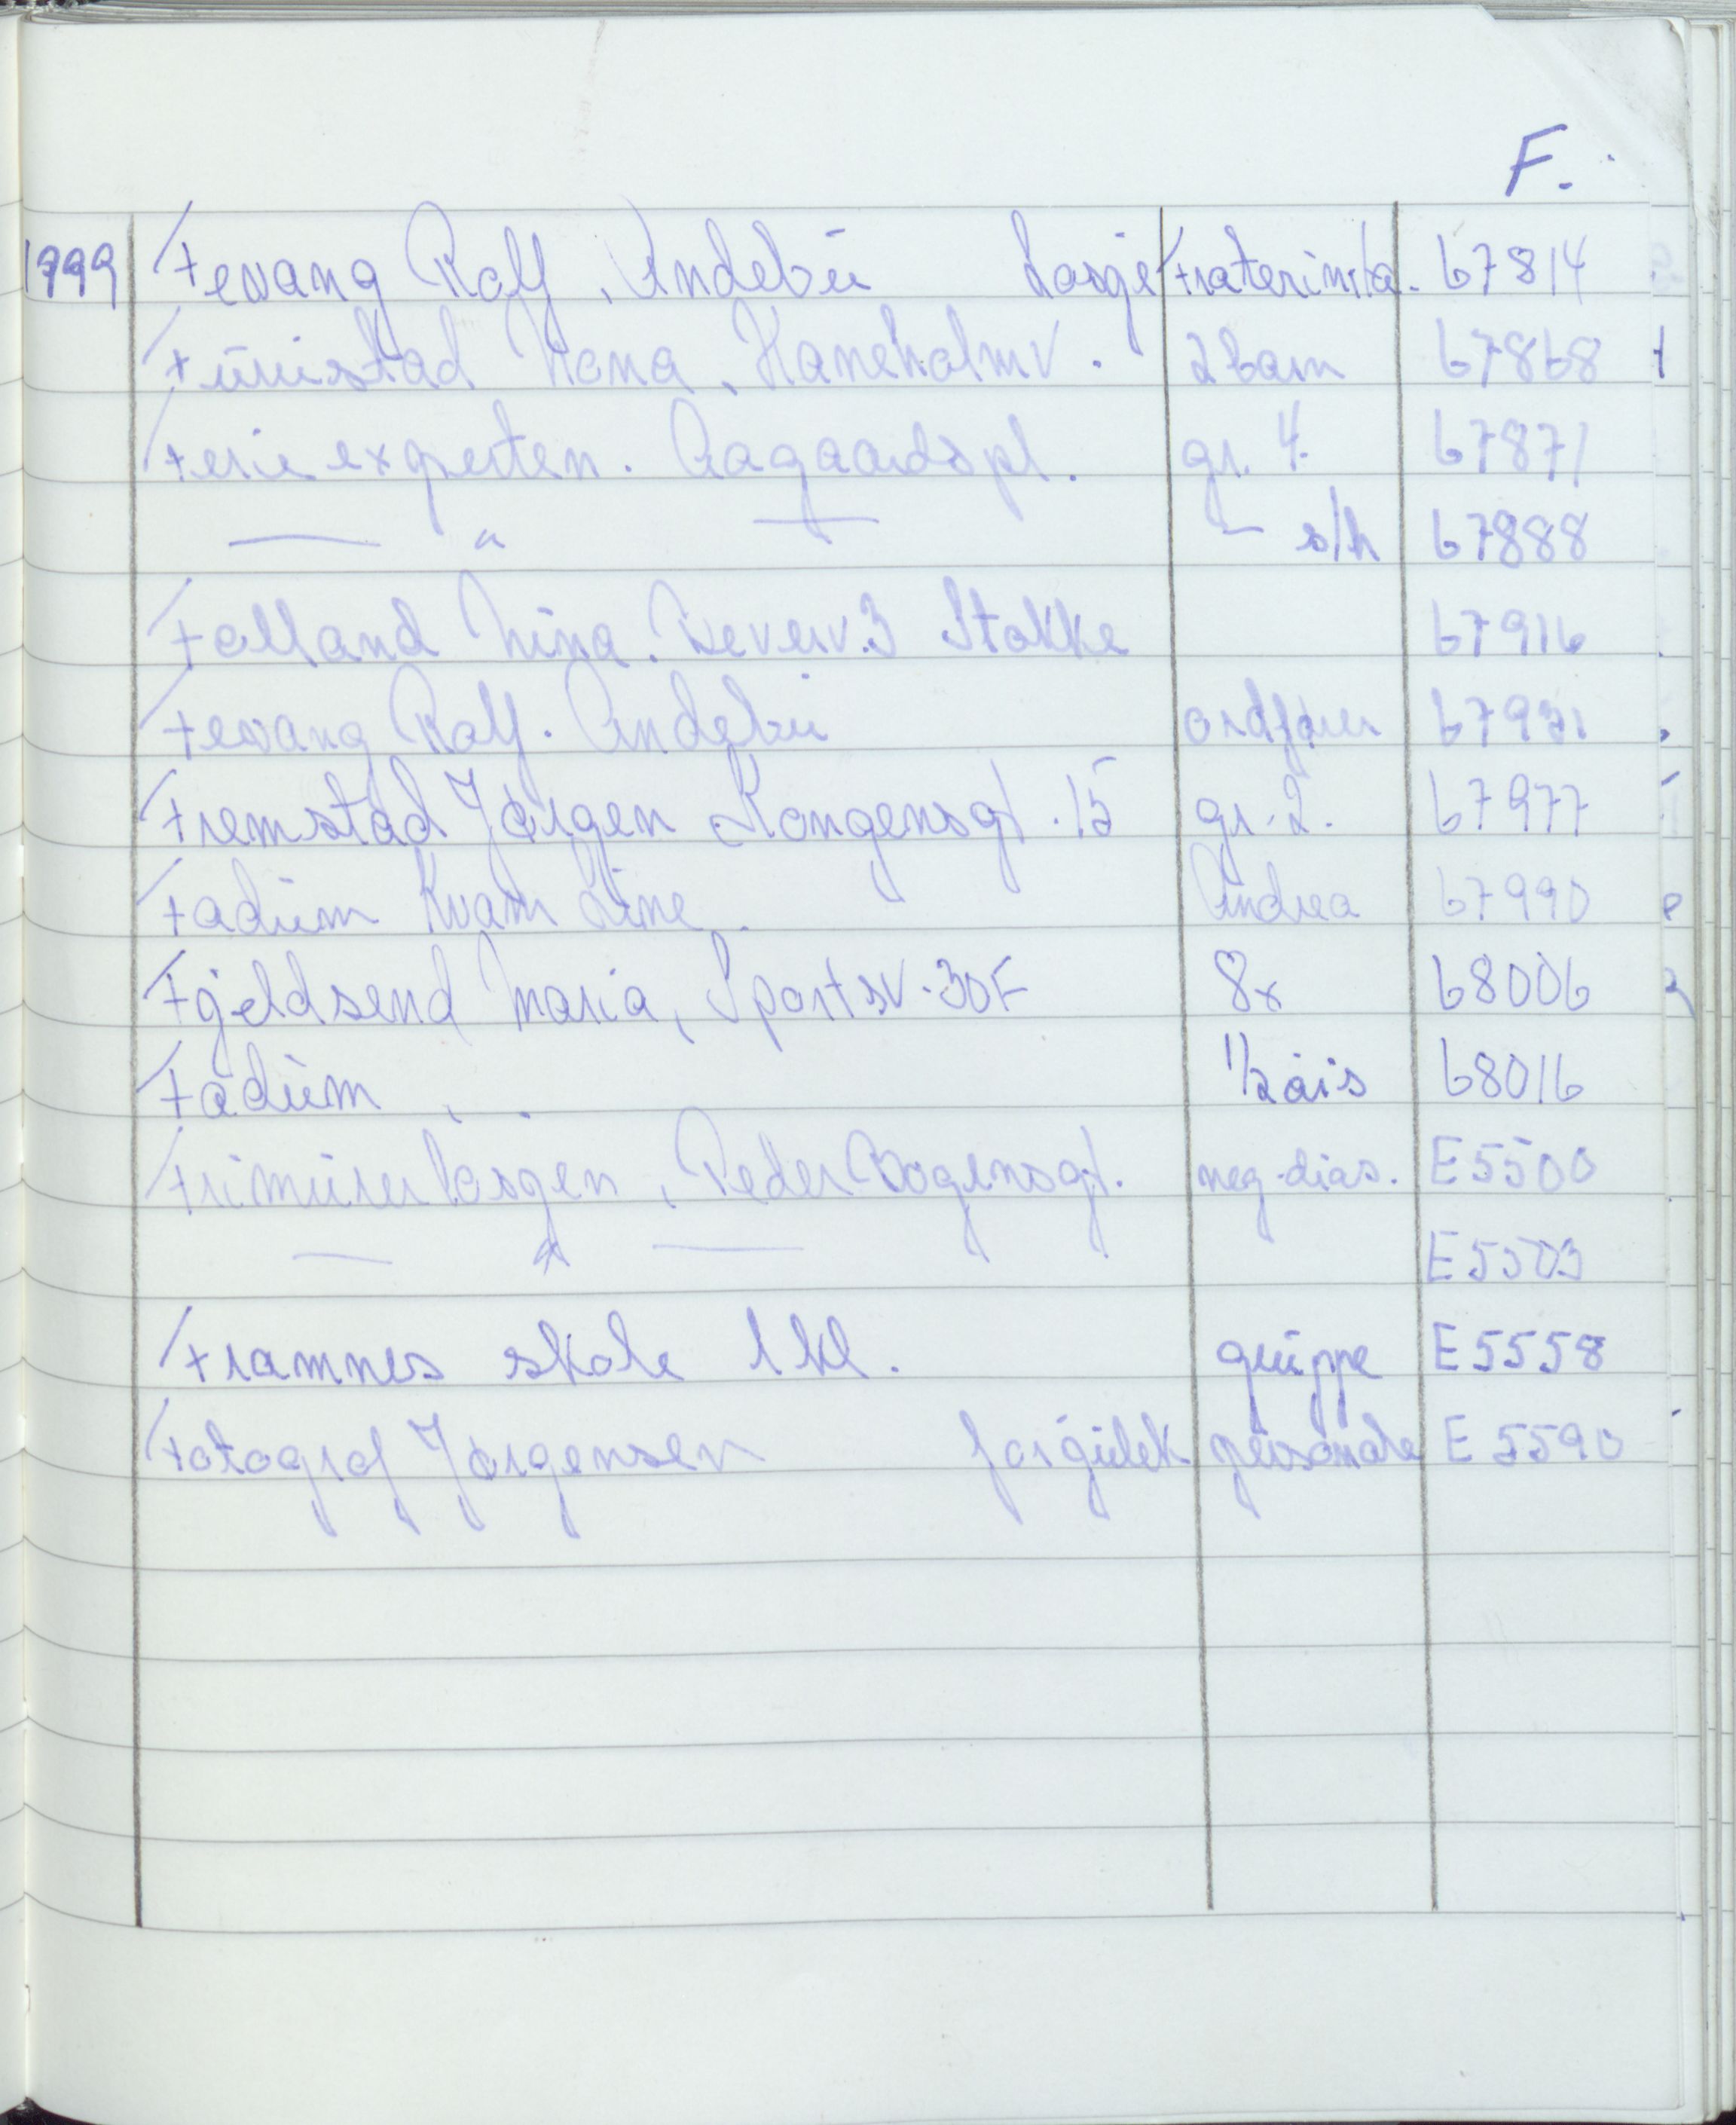 F.
1999 Fevang Rolf, Andebu Losje Fraternita. 67814
Furustad Mona, Haneholmv. 2 barn 67868
Ferie experten. Aagaards pl. gr. 4. 67871
— " — - s/h 67888
Folland Nina. Beverv. 3 Stokke 67916
Fevang Rolf. Andebu ordfører
Fremstad Jørgen Kongensgt. 15 gr. 2. 67977
Fadum Kvam Line. Andrea 67990
Fjeldsend Maria, Sportsv. 30F 8x 68006
Fadum, . 1/2 års 68016
Frimurerlosjen, Peder Bogensgt. neg-dias. E5500
— " — E5503
Framnes skole 1 kl. gruppe E5558
Fotograf Jørgensen personale E5590